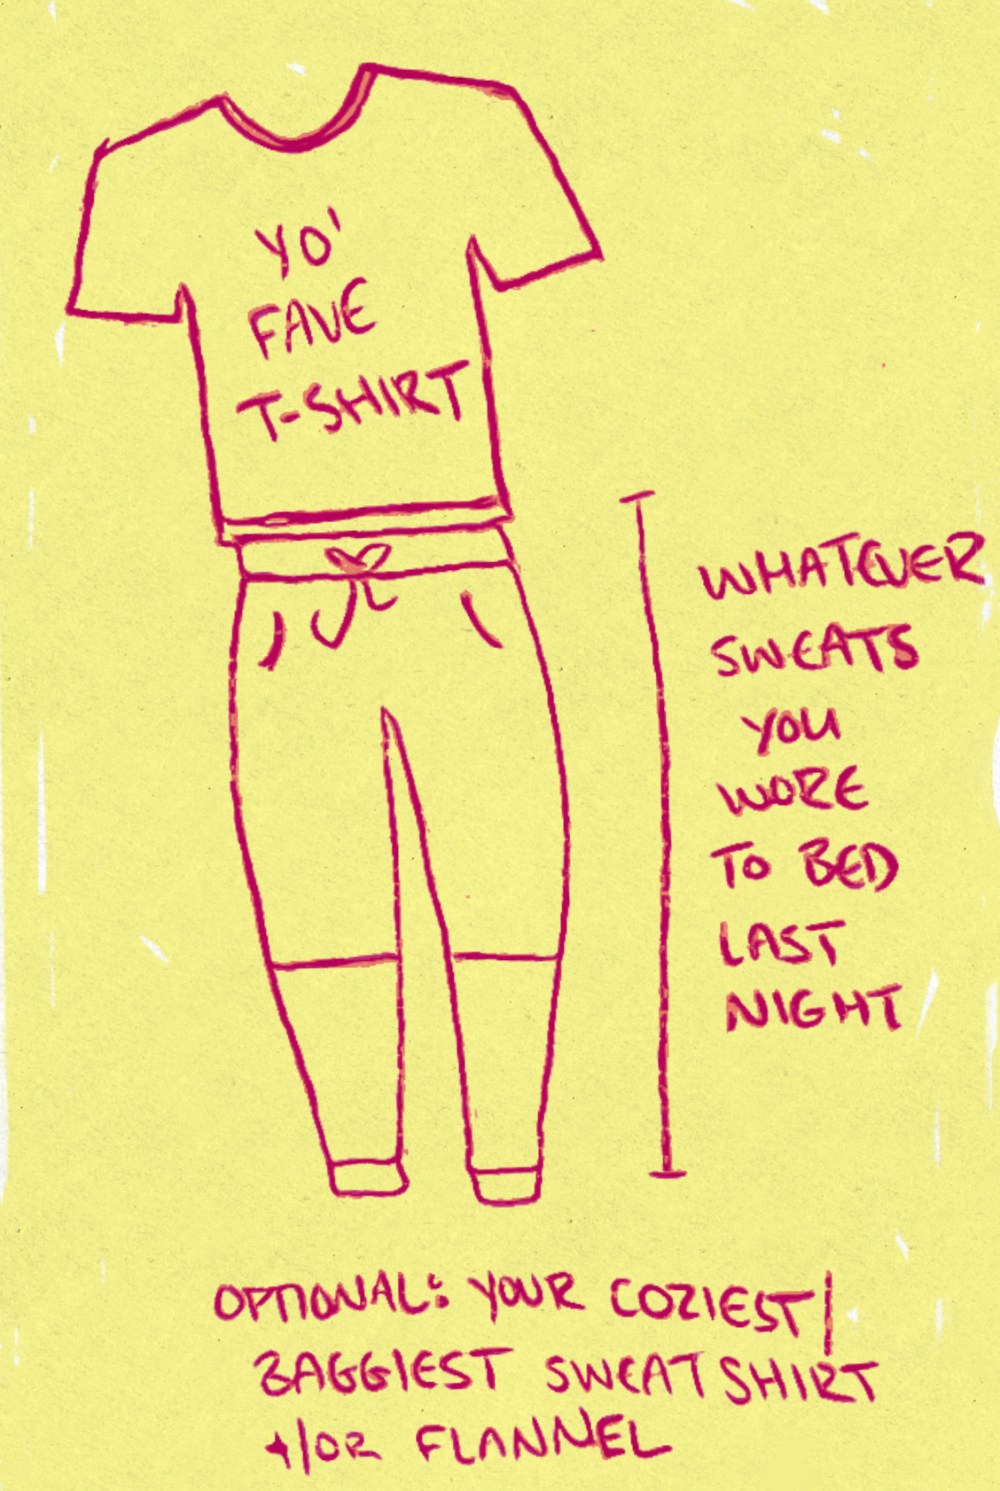 YO'
FAVE
T-SHIRT
WHATEVER
SWEATS
YOU
WORE
TO BED
LAST
NIGHT
OPTIONAL: YOUR COZIEST/
BAGGIEST SWEATSHIRT
+/OR FLANNEL